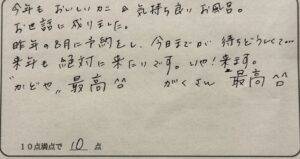 今年も おいしいカニ & 気持ち良いお風呂。
お世話に成りました。
昨年の8月に予約をし、今日までが 待ちどうしくて…
来年も 絶対に 来たいです。いや！来ます。
"かどや" 最高^^ がくさん 最高^^
10点満点で 10 点